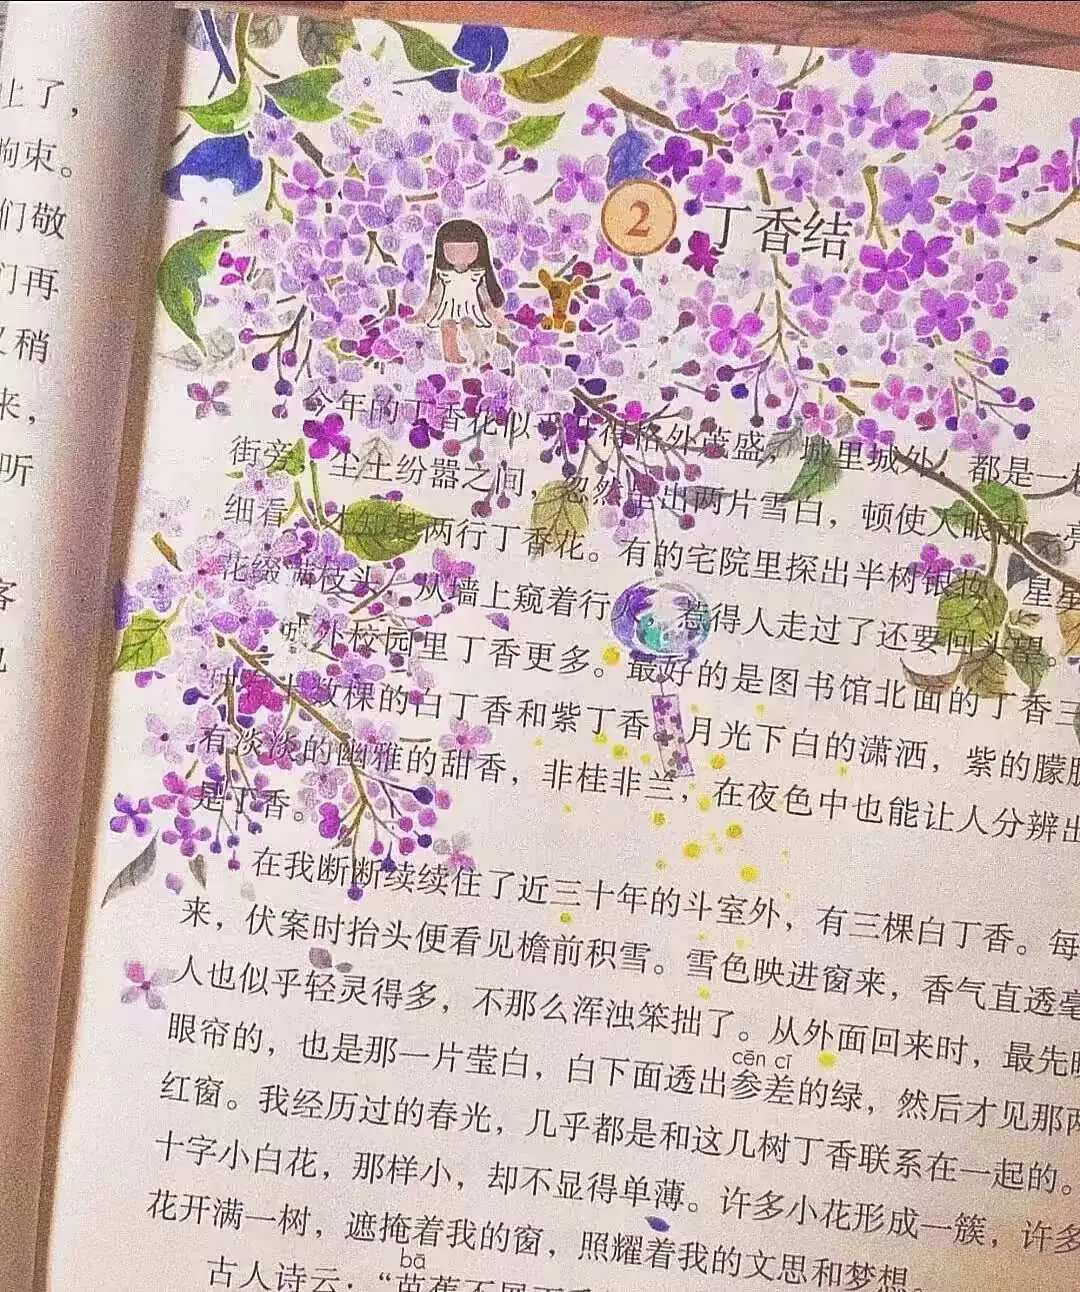 上了，
拘束。
们敬
们再
稍
来，
听
客
2 丁香结
今年的丁香花似乎 得格外茂盛，城里城外，都是一
街旁，尘土纷嚣之间，忽然 出两片雪白，顿使人眼前一亮
细看，才知是两行丁香花。有的宅院里探出半树银妆，星星
花缀满枝头，从墙上窥着行 ，惹得人走过了还要回头望。
外校园里丁香更多。最好的是图书馆北面的丁香三
十数棵的白丁香和紫丁香。月光下白的潇洒，紫的朦胧
有淡淡的幽雅的甜香，非桂非兰，在夜色中也能让人分辨出
是丁香。
在我断断续续住了近三十年的斗室外，有三棵白丁香。每
来，伏案时抬头便看见檐前积雪。雪色映进窗来，香气直透毫
人也似乎轻灵得多，不那么浑浊笨拙了。从外面回来时，最先映
cēn cī
眼帘的，也是那一片莹白，白下面透出参差的绿，然后才见那两
红窗。我经历过的春光，几乎都是和这几树丁香联系在一起的。
十字小白花，那样小，却不显得单薄。许多小花形成一簇，许多
花开满一树，遮掩着我的窗，照耀着我的文思和梦想。
bā
古人诗云：“芭蕉不展丁